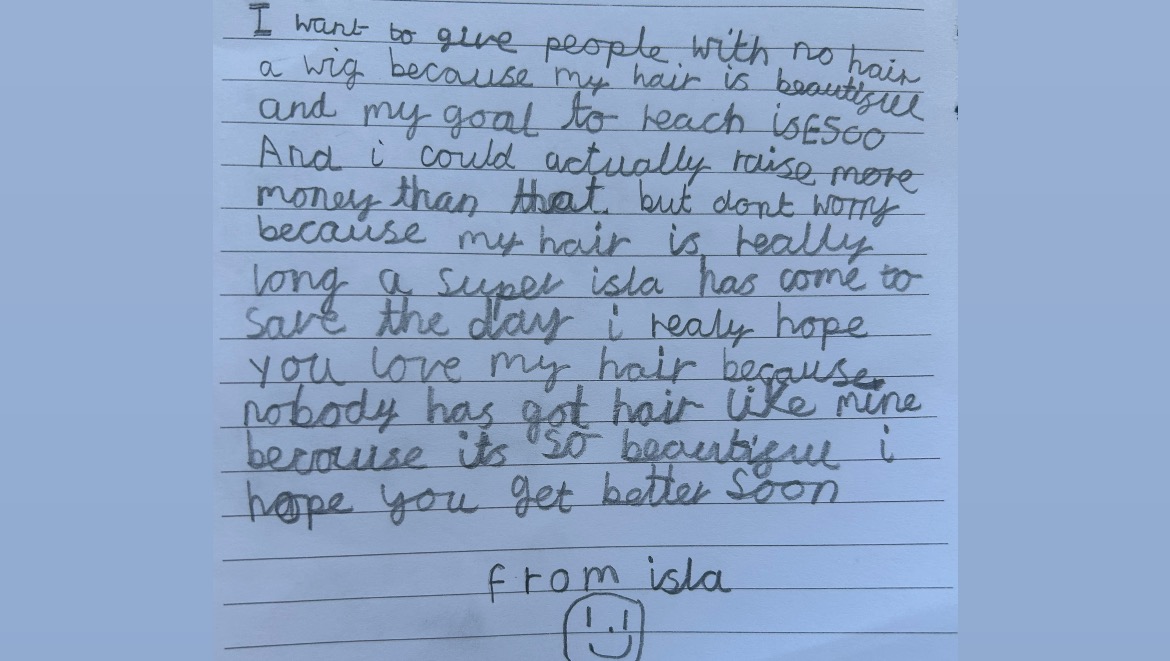 I want to give people with no hair
a wig because my hair is beautiful
and my goal to reach is £500
And i could actually raise more
money than that. but dont worry
because my hair is really
long a super isla has come to
save the day i realy hope
you love my hair because
nobody has got hair like mine
because its so beautiful i
hope you get better soon
from isla